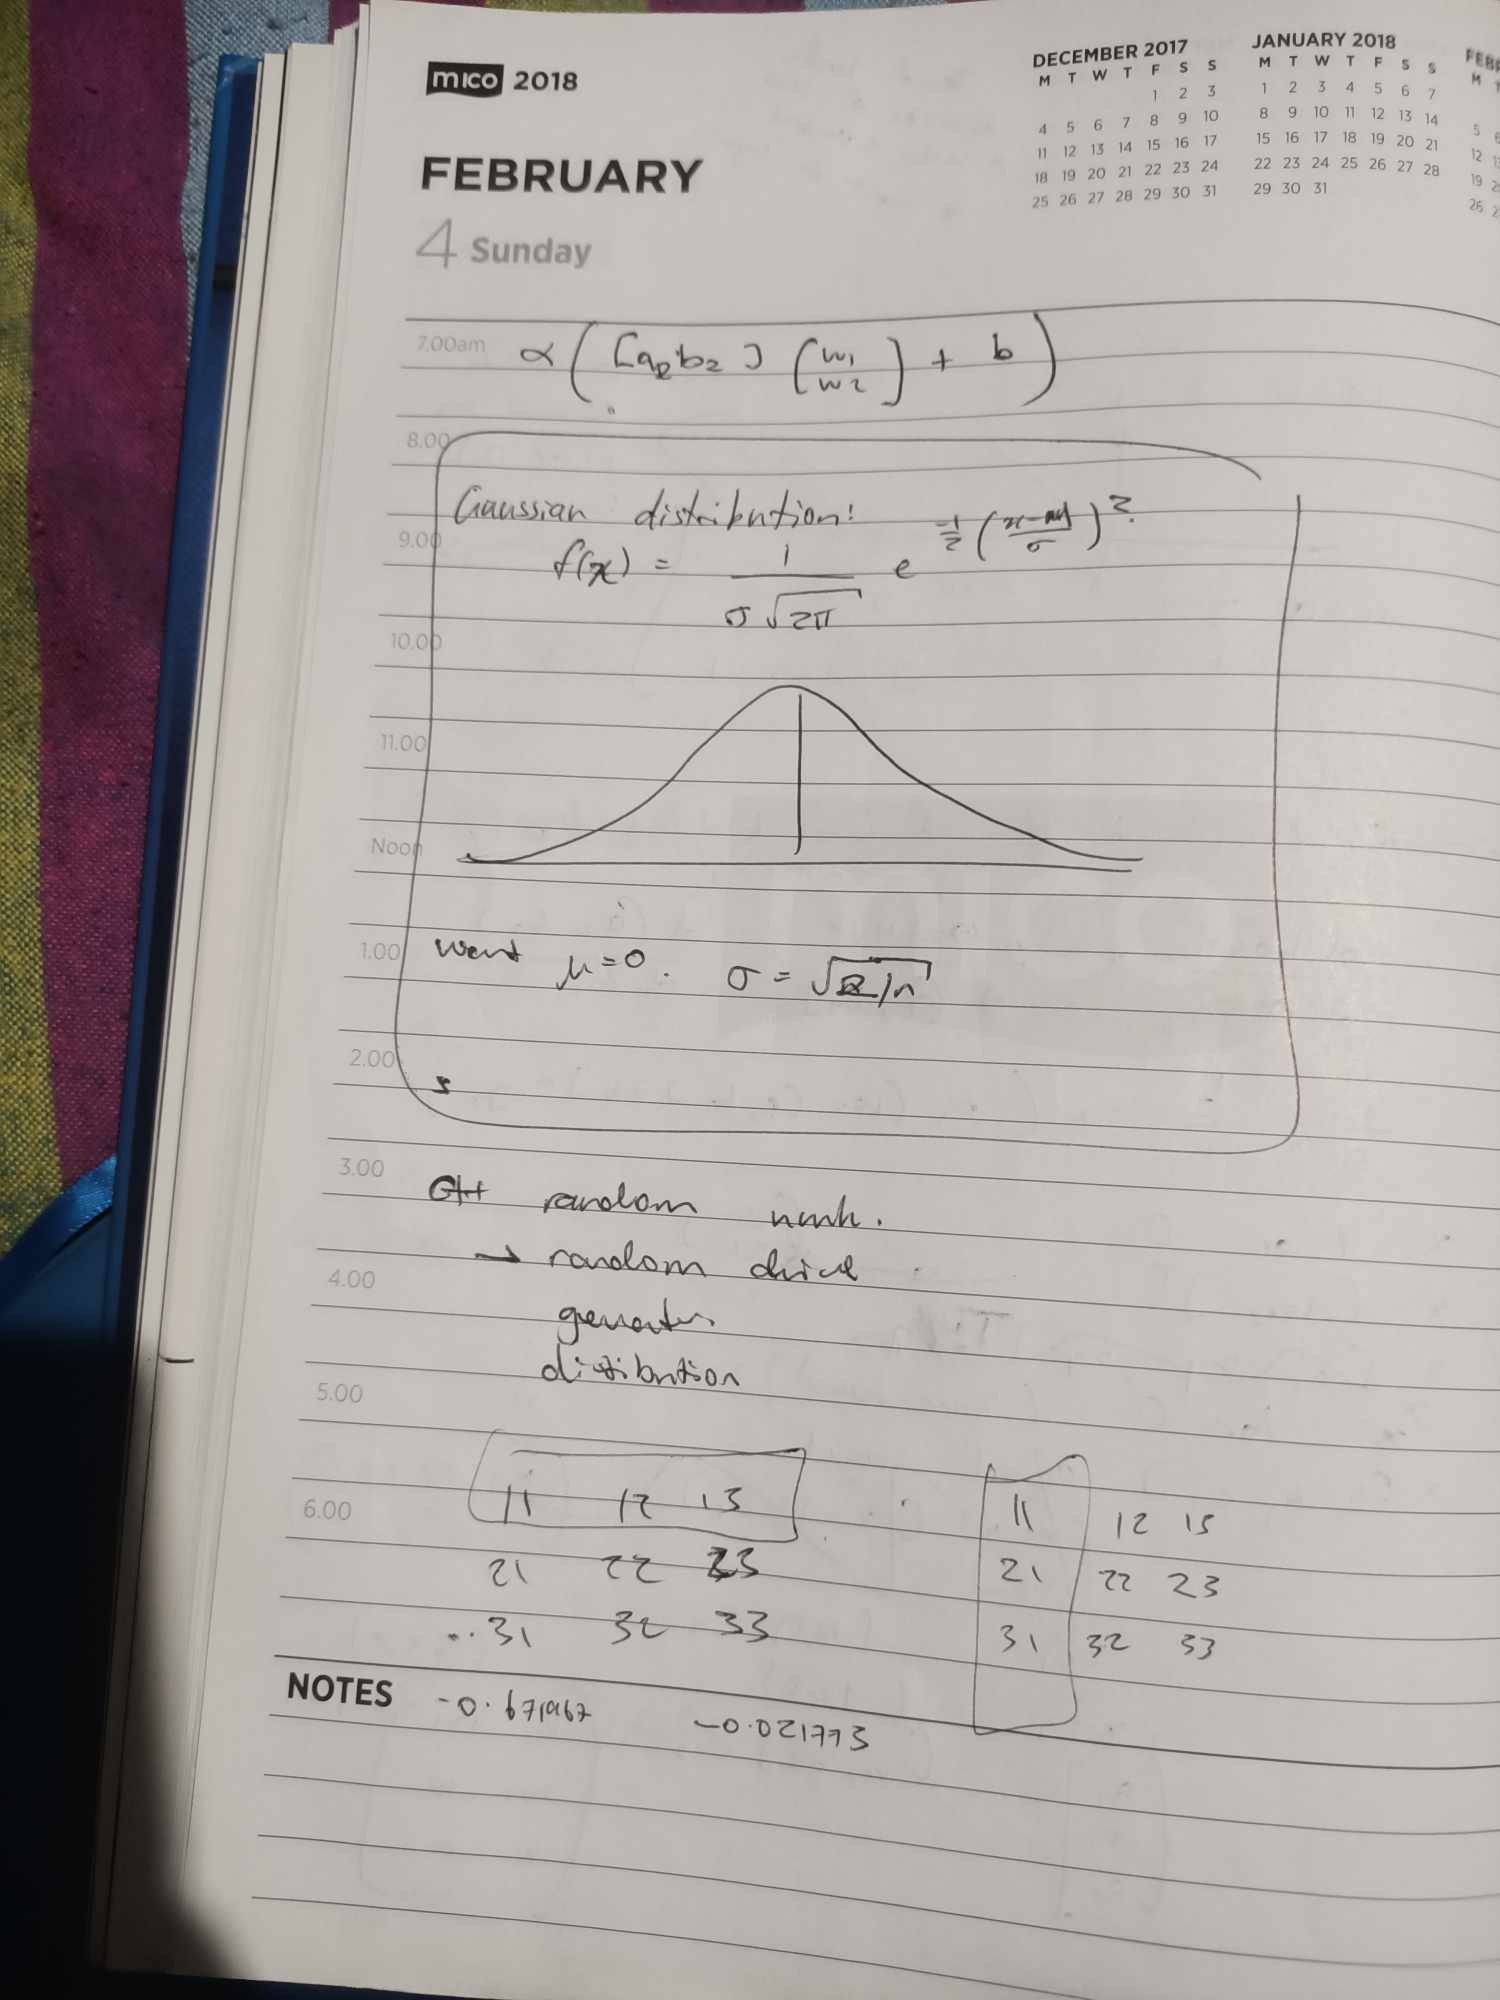 mico 2018
DECEMBER 2017
M T W T F S S
1 2 3
4 5 6 7 8 9 10
11 12 13 14 15 16 17
18 19 20 21 22 23 24
25 26 27 28 29 30 31
JANUARY 2018
M T W T F S S
1 2 3 4 5 6 7
8 9 10 11 12 13 14
15 16 17 18 19 20 21
22 23 24 25 26 27 28
29 30 31
FEBRUARY
4 Sunday
7.00am α ( [a₂ b₂] [w1 w2] + b )
8.00
Gaussian distribution:
9.00
f(x) = 1 / σ√2π e^ -1/2 (x-μ/σ)²
10.00
11.00
Noon
1.00 want μ=0. σ = √2/n
2.00
3.00 C++ random
→ random
4.00
distibution
5.00
6.00 11 12 13 11 12 13
21 22 23 21 22 23
31 32 33 31 32 33
NOTES -0.671967 -0.021773